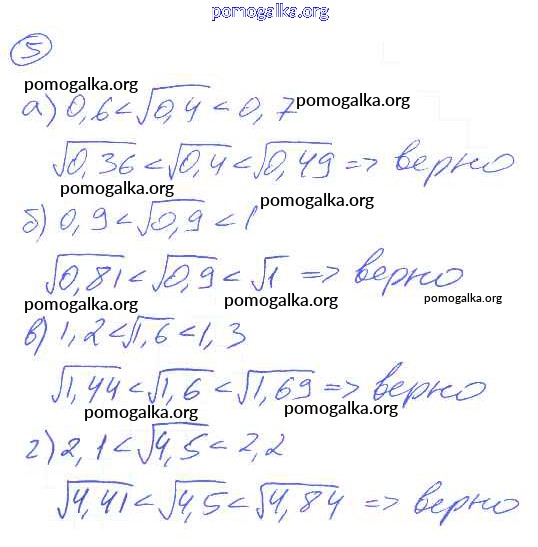 pomogalka.org
5
pomogalka.org
а) 0,6 < √0,4 < 0,7 pomogalka.org
√0,36 < √0,4 < √0,49 => верно
pomogalka.org
б) 0,9 < √0,9 < 1 pomogalka.org
√0,81 < √0,9 < √1 => верно
pomogalka.org pomogalka.org pomogalka.org
в) 1,2 < √1,6 < 1,3
√1,44 < √1,6 < √1,69 => верно
pomogalka.org pomogalka.org
г) 2,1 < √4,5 < 2,2
√4,41 < √4,5 < √4,84 => верно